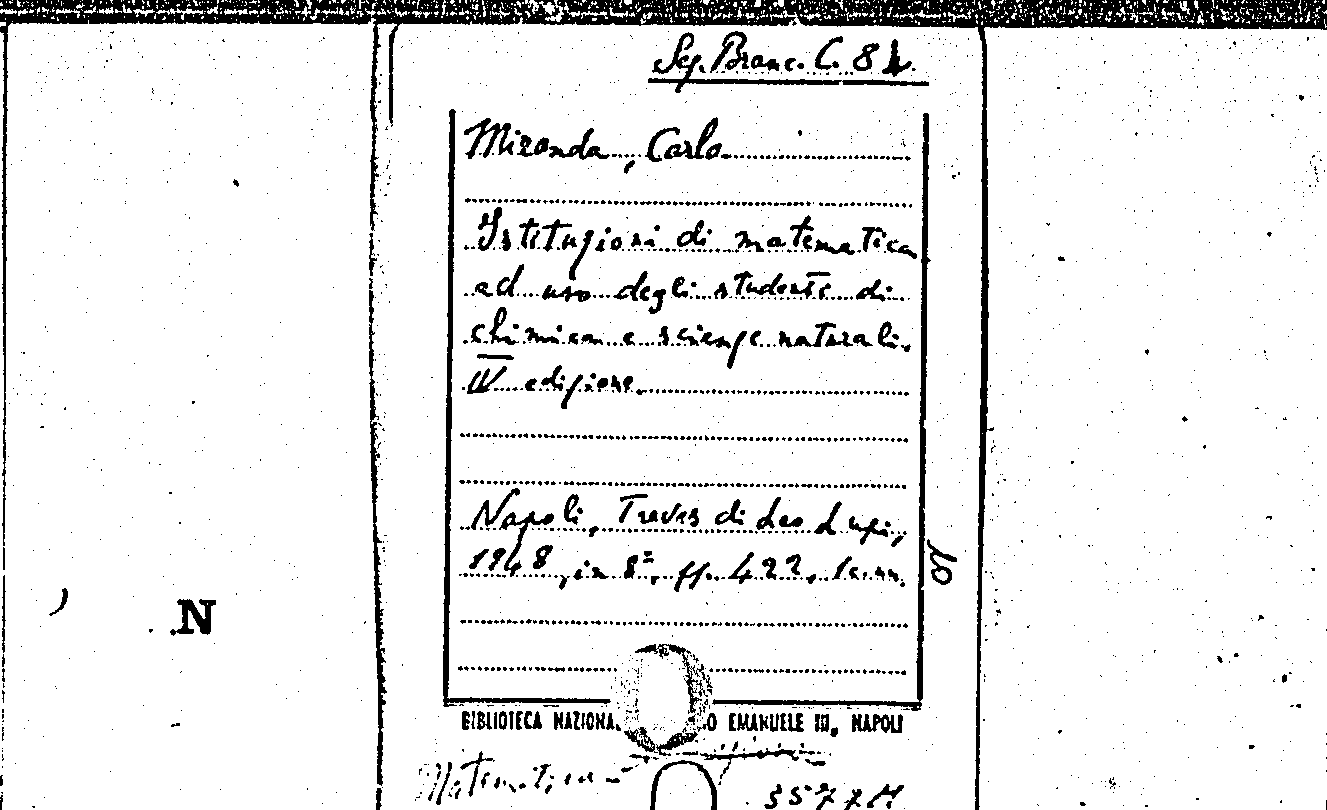 Seg. Branc. C. 84
Miranda, Carlo
Istituzioni di matematica
ad uso degli studenti di
chimica e scienze naturali.
IV edizione.
Napoli, Treves di Leo Lupi,
1948, in 8º, pp. 422, 1c.nn.
N
BIBLIOTECA NAZIONA O EMANUELE III, NAPOLI
Matematica